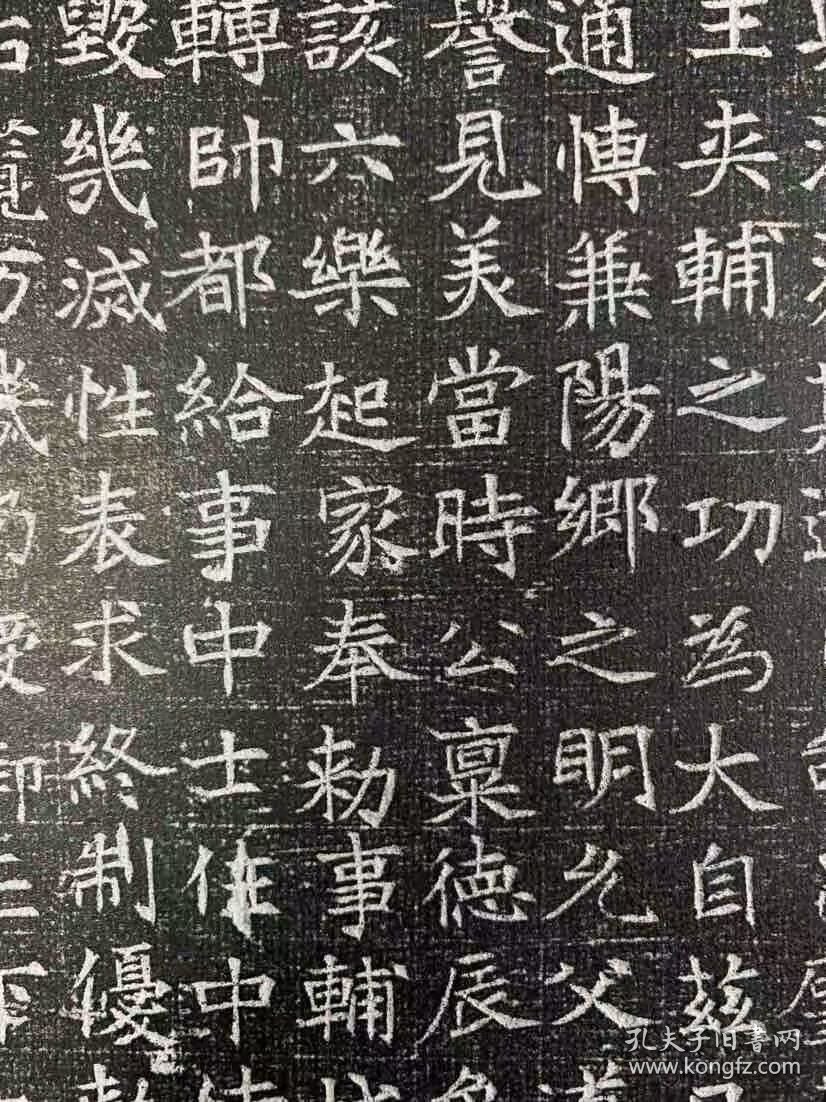 夾輔之功為大自茲
通愽兼陽鄉之明允父
譽見美當時公稟德辰
該六樂起家奉勑事輔
轉帥都給事中士任中
毀幾滅性表求終制優
孔夫子旧書网
www.kongfz.com